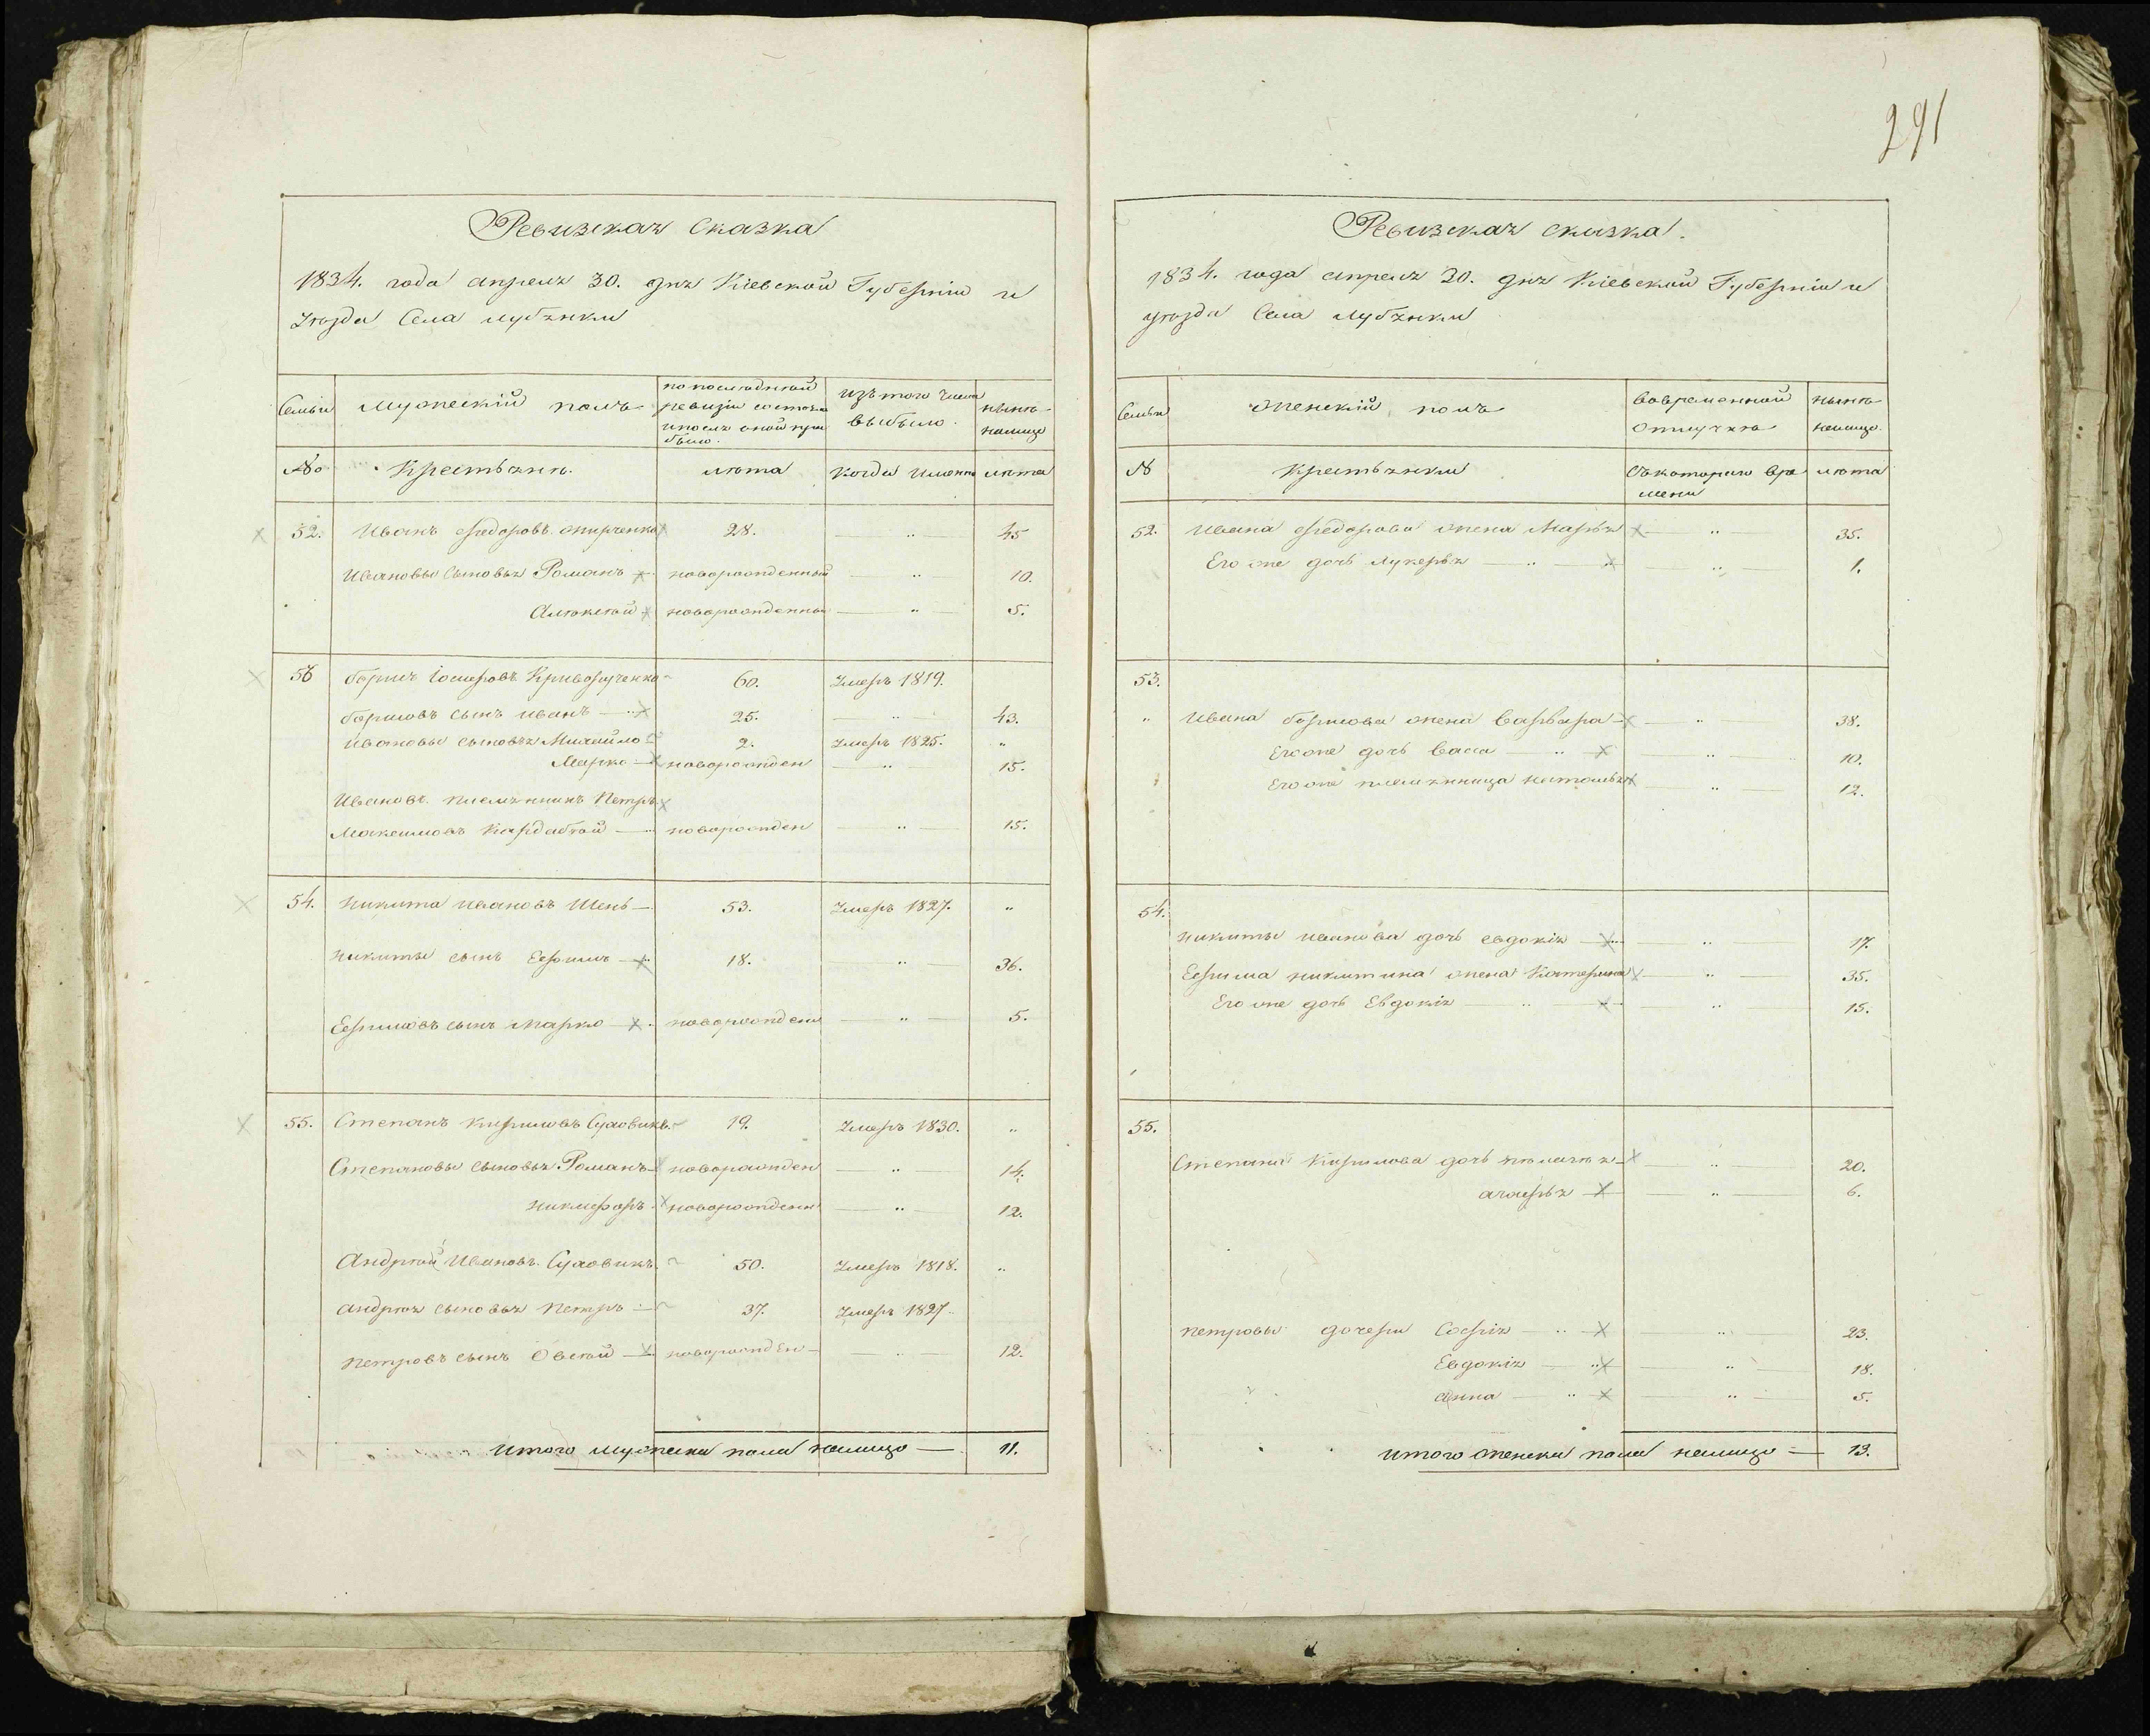 291
Ревизская Сказка
1834. года апреля 30. дня Кіевской Губерніи и
Уезда Села Лубянки
Семьи
Мужескій полъ
по последней ревизіи состояло и после оной прибыло.
изъ того числа выбыло.
ныне налицо
№
Крестьяне.
лета
когда именно
лета
52. Иванъ Федоровъ 28. " 45
Ивановы сыновья Романъ новорожденный " 10.
Алексей новорожденный " 5.
53 Іосифовъ Криворученко 60. Умеръ 1819.
сынъ Иванъ 25. " 43.
Ивановы сыновья Михайло 2. Умеръ 1825. "
Марко новорожден " 15.
Ивановъ племянникъ Петръ
Максимовъ новорожден " 15.
54. Никита Ивановъ Шень 53. Умеръ 1827. "
Никиты сынъ Ефимъ 18. " 36.
Ефимовъ сынъ Марко новорожден " 5.
55. Степанъ Кириловъ Суховикъ 19. Умеръ 1830. "
Степановы сыновья Романъ новорожден " 14.
Никифоръ новорожден " 12.
Андрей Ивановъ Суховикъ 50. Умеръ 1818. "
Андрея сыновья Петръ 37. Умеръ 1827.
Петровъ сынъ Овсей новорожден " 12.
Итого мужеска пола налицо — 11.
Ревизская сказка.
1834. года апреля 30. дня Кіевской Губерніи и
уезда Села Лубянки
Семьи
Женскій полъ
во временной отлучке
ныне налицо.
№
Крестьянки
съ котораго времени
лета
52. Ивана Федорова жена Марья " 35.
Его же дочь Лукерья " 1.
53.
" Ивана жена Варвара " 38.
Его же дочь Васса " 10.
Его же племянница Наталья " 12.
54.
Никиты Иванова дочь Евдокія " 17.
Ефима Никитина жена Катерина " 35.
Его же дочь Евдокія " 15.
55.
Степана Кирилова дочь " 20.
" 6.
Петровы дочери Софія " 23.
Евдокія " 18.
Анна " 5.
Итого женска пола налицо — 13.